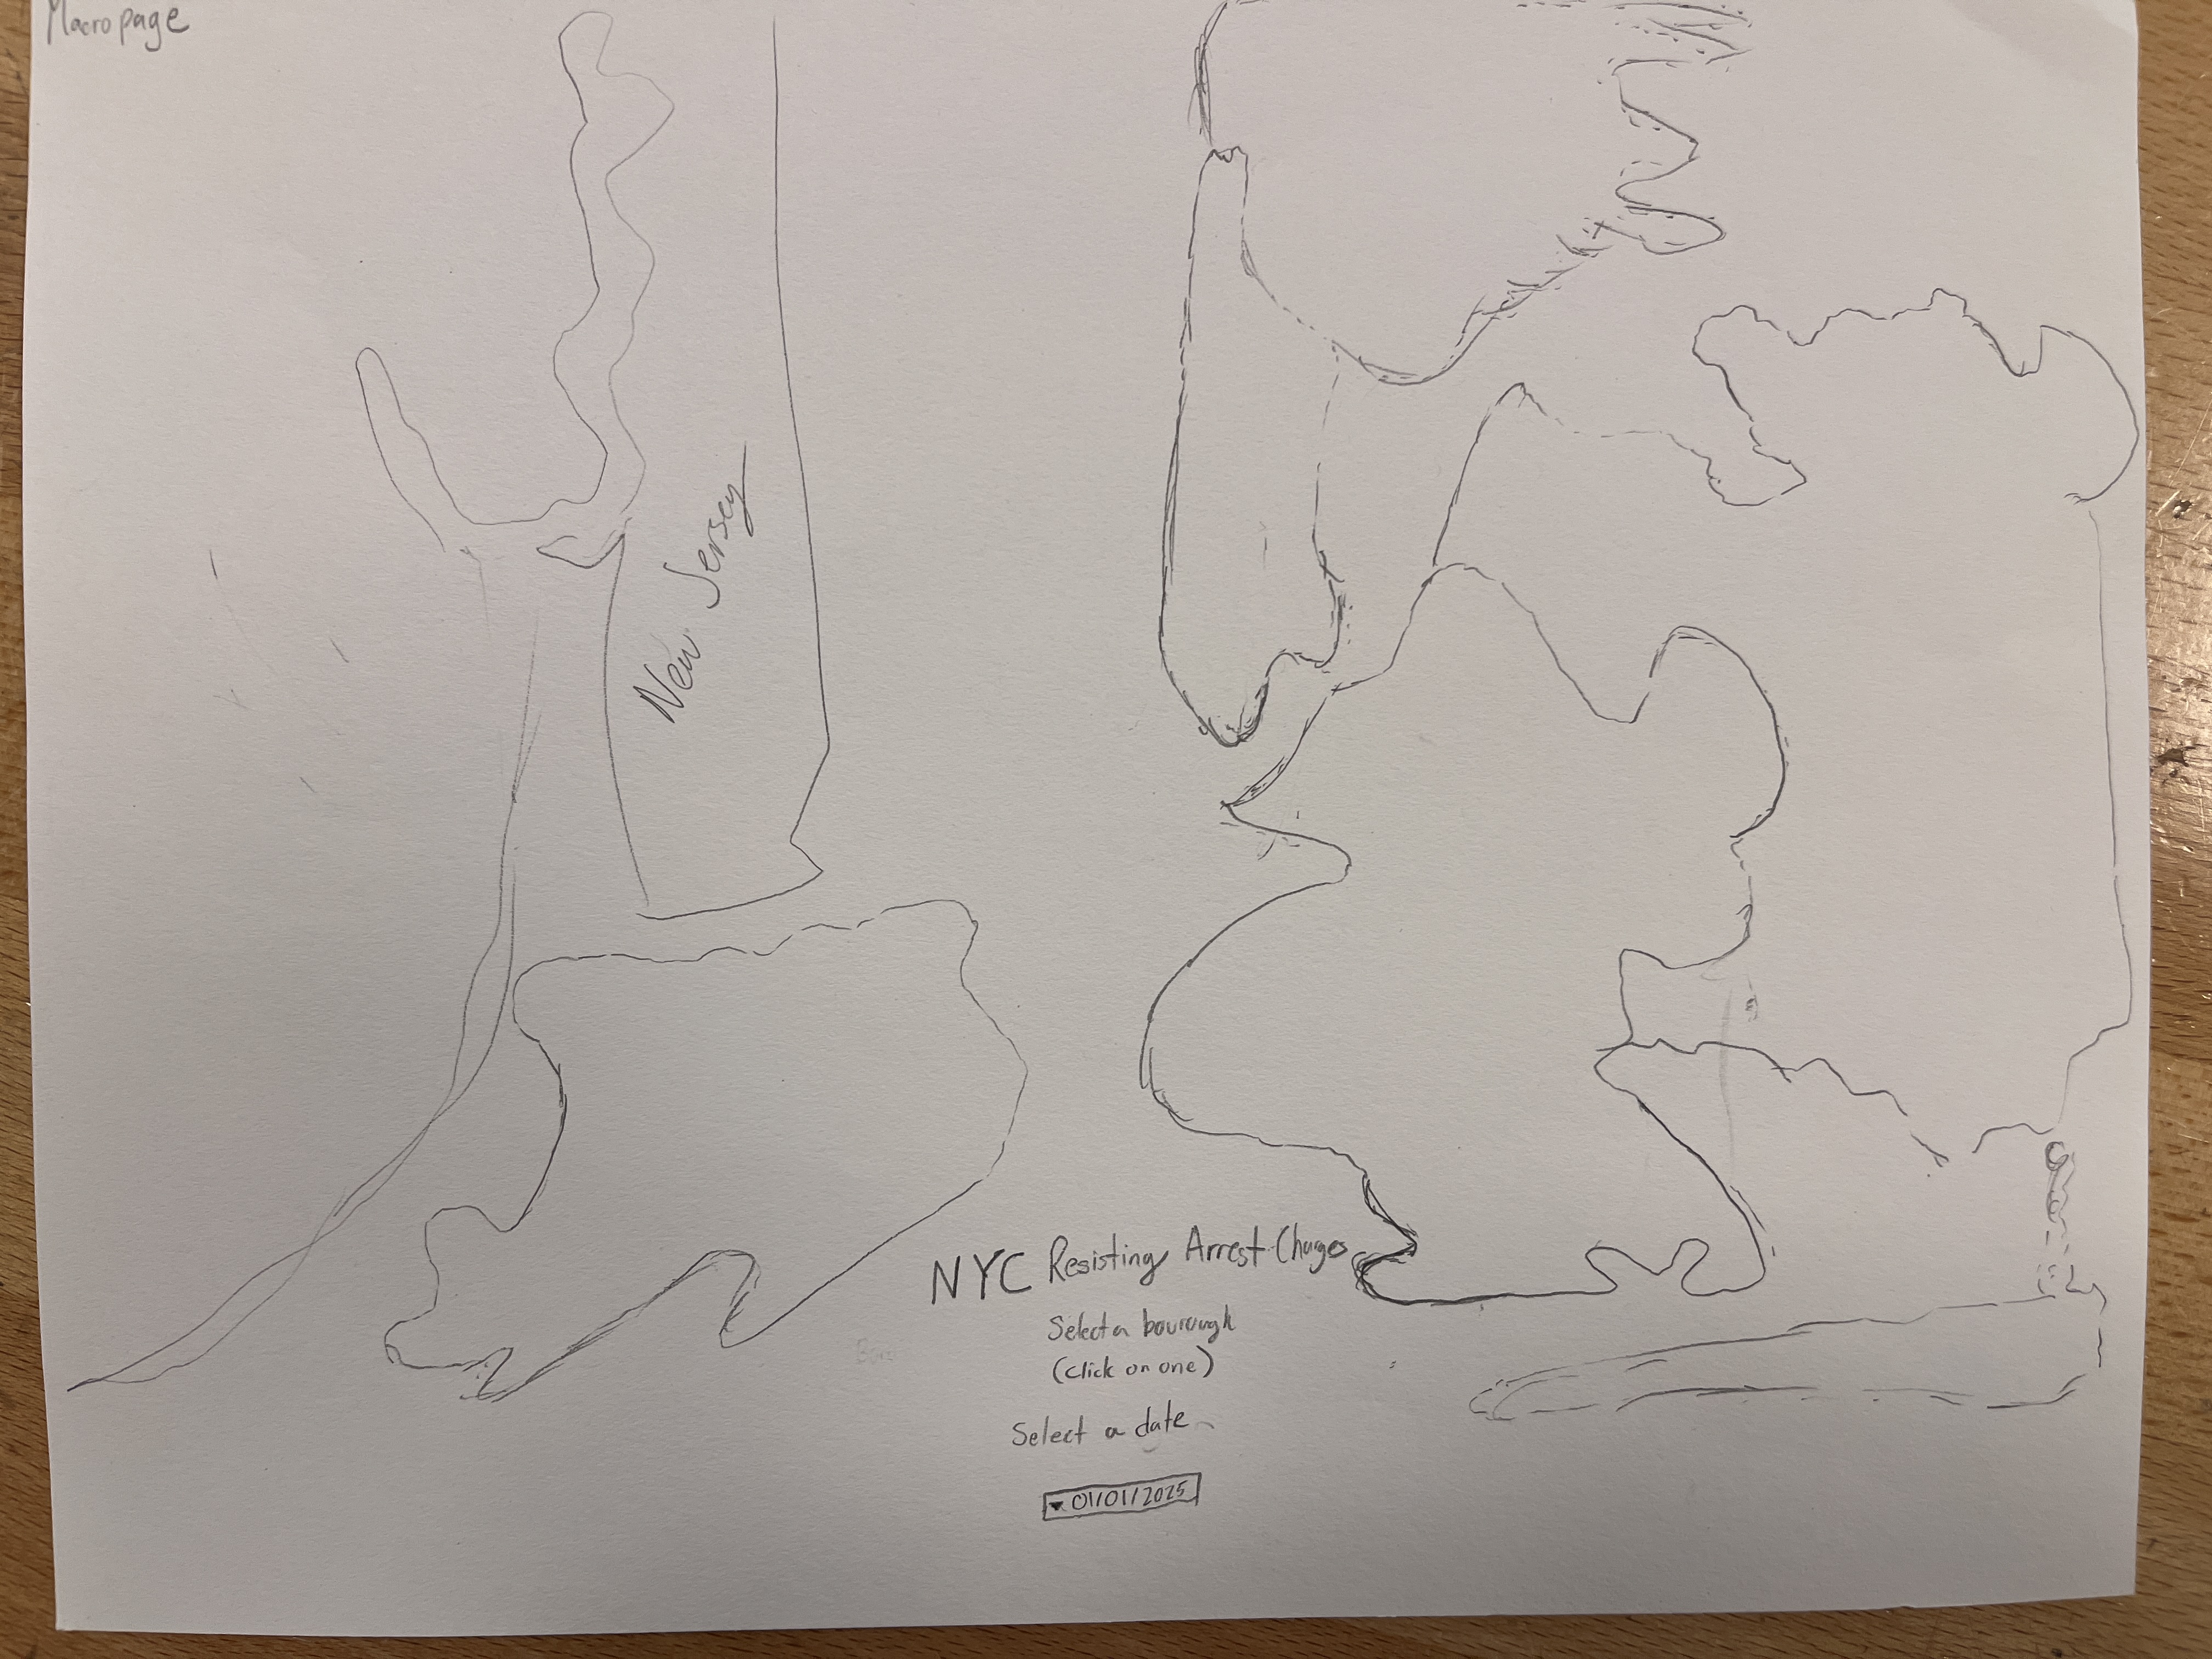 Macro page
New Jersey
NYC Resisting Arrest Charges
Select a bourough
(click on one)
Select a date
01/01/2025